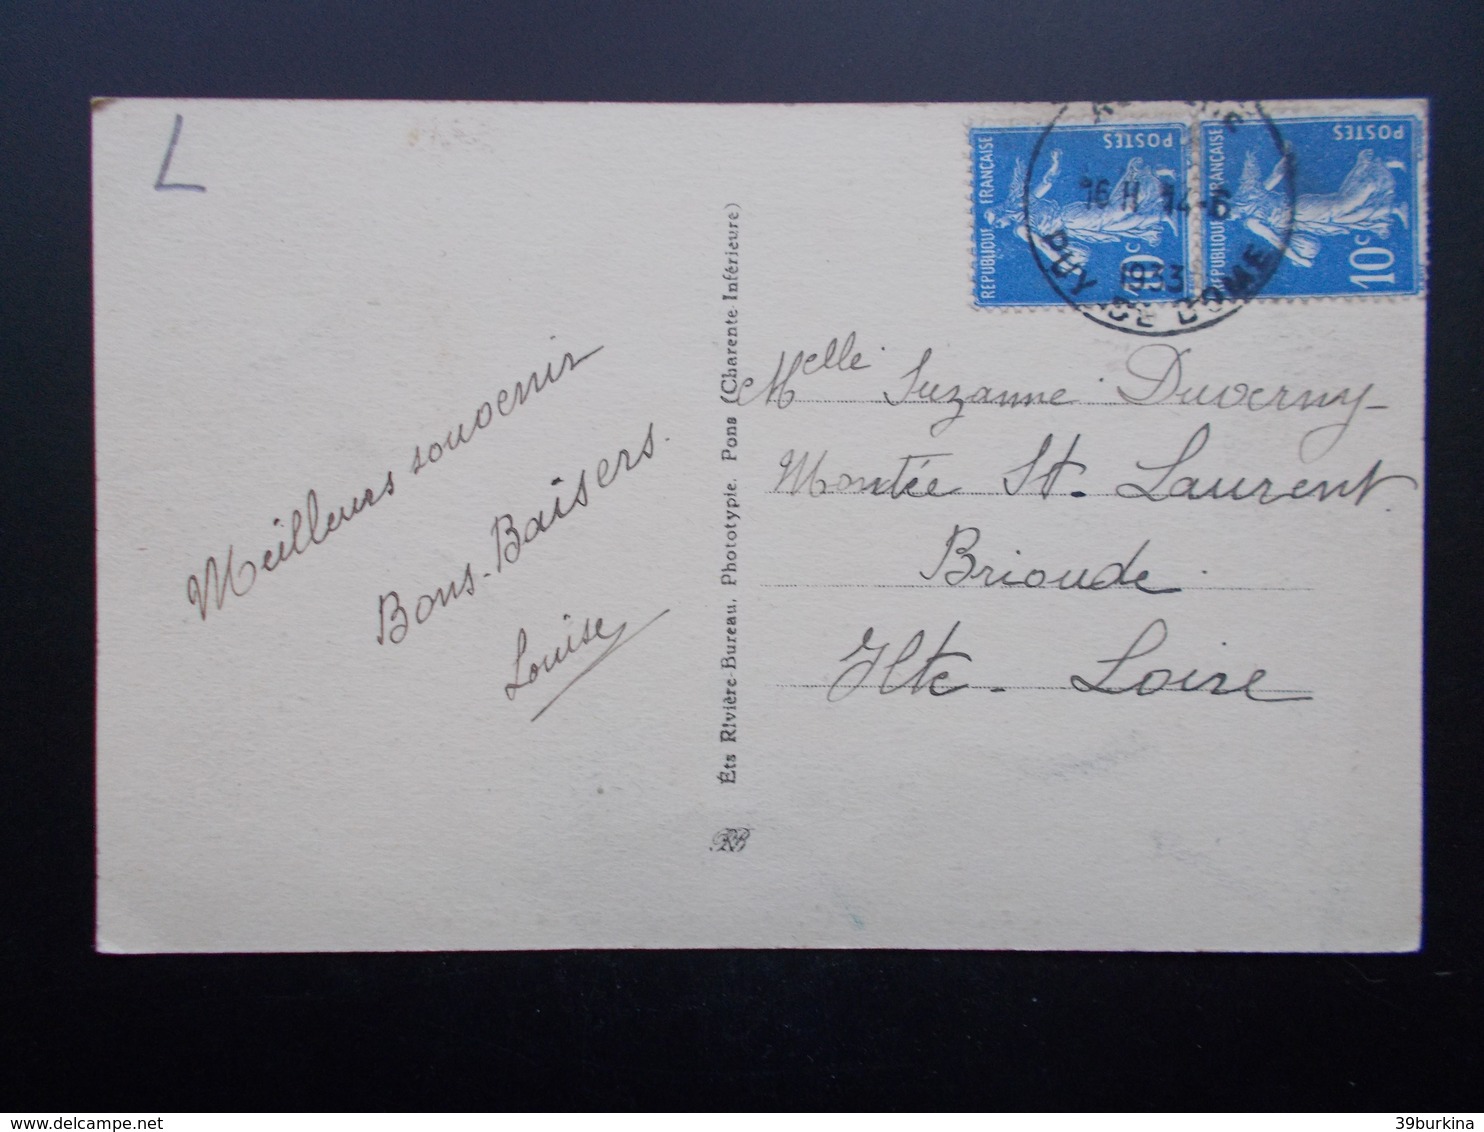 L
Meilleurs souvenir
Bons-Baisers.
Louise
Éts Rivière-Bureau, Phototypie. Pons (Charente-Inférieure)
RB
RÉPUBLIQUE FRANÇAISE
POSTES
10c
RÉPUBLIQUE FRANÇAISE
POSTES
10c
16 H 14-6
1933
PUY-DE DOME
Melle Suzanne Duverny-
Montée St. Laurent.
Brioude.
Hte-Loire
39burkina
delcampe.net